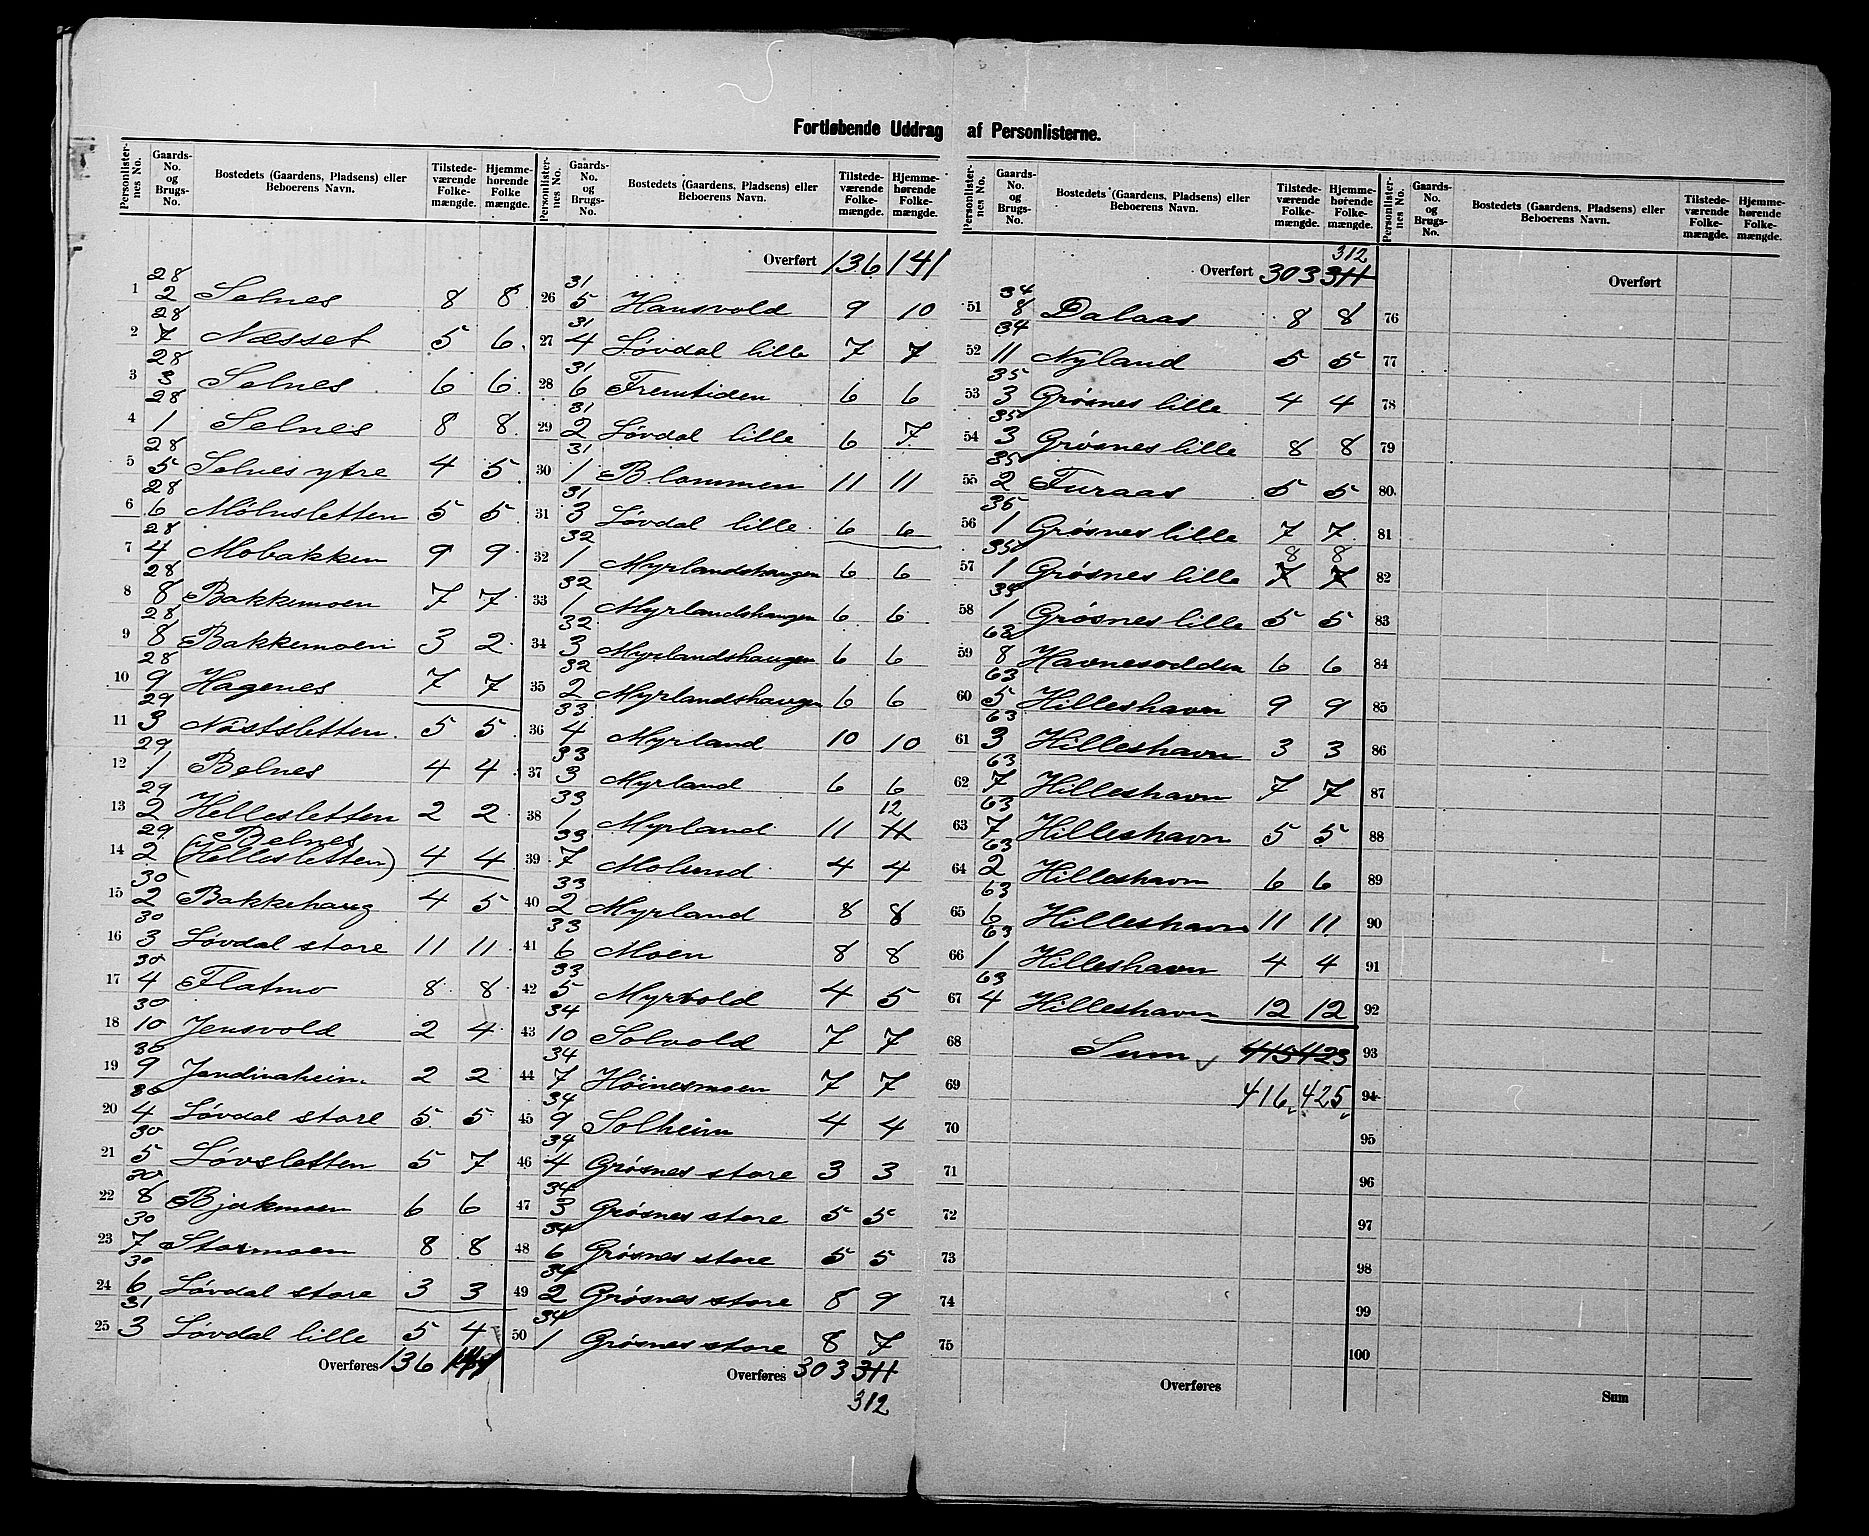 Fortløbende Uddrag af Personlisterne.
Personlister-nes No. | Gaards-No. og Brugs-No. | Bostedets (Gaardens, Pladsens) eller Beboerens Navn. | Tilstede-værende Folke-mængde. | Hjemme-hørende Folke mængde.
1 | 28 2 | Selnes | 8 | 8
2 | 28 7 | Næsset | 5 | 6
3 | 28 3 | Selnes | 6 | 6
4 | 28 1 | Selnes | 8 | 8
5 | 28 5 | Selnes ytre | 4 | 5
6 | 28 6 | Mølnsletten | 5 | 5
7 | 28 4 | Mobakken | 9 | 9
8 | 28 8 | Bakkemoen | 7 | 7
9 | 28 8 | Bakkemoen | 3 | 2
10 | 28 9 | Hagenes | 7 | 7
11 | 29 3 | Nøstsletten | 5 | 5
12 | 29 1 | Belnes | 4 | 4
13 | 29 2 | Hellesletten | 2 | 2
14 | 29 2 | Belnes (Hellesletten) | 4 | 4
15 | 30 2 | Bakkehaug | 4 | 5
16 | 30 3 | Løvdal store | 11 | 11
17 | 30 4 | Flatmo | 8 | 8
18 | 30 10 | Jensvold | 2 | 4
19 | 30 9 | Jendivaheim | 2 | 2
20 | 30 4 | Løvdal store | 5 | 5
21 | 30 5 | Løvsletten | 5 | 7
22 | 30 8 | Bjorkmoen | 6 | 6
23 | 30 7 | Stormoen | 8 | 8
24 | 30 6 | Løvdal store | 3 | 3
25 | 31 3 | Løvdal lille | 5 | 4
Overføres 136 141
Personlister-nes No. | Gaards-No. og Brugs-No. | Bostedets (Gaardens, Pladsens) eller Beboerens Navn. | Tilstede-værende Folke-mængde. | Hjemme-hørende Folke-mængde.
Overført 136 141
26 | 31 5 | Hansvold | 9 | 10
27 | 31 4 | Løvdal lille | 7 | 7
28 | 31 6 | Fremtiden | 6 | 6
29 | 31 2 | Løvdal lille | 6 | 7
30 | 31 1 | Blommen | 11 | 11
31 | 31 3 | Løvdal lille | 6 | 6
32 | 32 1 | Myrlandshaugen | 6 | 6
33 | 32 1 | Myrlandshaugen | 6 | 6
34 | 32 3 | Myrlandshaugen | 6 | 6
35 | 32 2 | Myrlandshaugen | 6 | 6
36 | 33 4 | Myrland | 10 | 10
37 | 33 3 | Myrland | 6 | 6
38 | 33 1 | Myrland | 11 | 11 12
39 | 33 7 | Molund | 4 | 4
40 | 33 2 | Myrland | 8 | 8
41 | 33 6 | Moen | 8 | 8
42 | 33 5 | Myrvold | 4 | 5
43 | 34 10 | Solvold | 7 | 7
44 | 34 7 | Høinesmoen | 7 | 7
45 | 34 9 | Solheim | 4 | 4
46 | 34 4 | Grøsnes store | 3 | 3
47 | 34 3 | Grøsnes store | 5 | 5
48 | 34 6 | Grøsnes store | 5 | 5
49 | 34 2 | Grøsnes store | 8 | 9
50 | 34 1 | Grøsnes store | 8 | 7
Overføres 303 311
312
Personlister-nes No. | Gaards-No. og Brugs-No. | Bostedets (Gaardens, Pladsens) eller Beboerens Navn. | Tilstede-værende Folke-mængde. | Hjemme-hørende Folke-mængde.
312
Overført 303 311
51 | 34 8 | Dalaas | 8 | 8
52 | 34 11 | Nyland | 5 | 5
53 | 35 3 | Grøsnes lille | 4 | 4
54 | 35 3 | Grøsnes lille | 8 | 8
55 | 35 2 | Furaas | 5 | 5
56 | 35 1 | Grøsnes lille | 7 | 7
57 | 35 1 | Grøsnes lille | 7 8 | 7 8
58 | 35 1 | Grøsnes lille | 5 | 5
59 | 63 8 | Havnesodden | 6 | 6
60 | 63 5 | Hilleshavn | 9 | 9
61 | 63 3 | Hilleshavn | 3 | 3
62 | 63 7 | Hilleshavn | 7 | 7
63 | 63 7 | Hilleshavn | 5 | 5
64 | 63 2 | Hilleshavn | 6 | 6
65 | 63 6 | Hilleshavn | 11 | 11
66 | 63 1 | Hilleshavn | 4 | 4
67 | 63 4 | Hilleshavn | 12 | 12
68 | Sum | 415 | 423
69 | 416 | 425
70
71
72
73
74
75
Overføres
Personlister-nes No. | Gaards-No. og Brugs-No. | Bostedets (Gaardens, Pladsens) eller Beboerens Navn. | Tilstede-værende Folke-mængde. | Hjemme-hørende Folke-mængde.
Overført
76
77
78
79
80
81
82
83
84
85
86
87
88
89
90
91
92
93
94
95
96
97
98
99
100
Sum